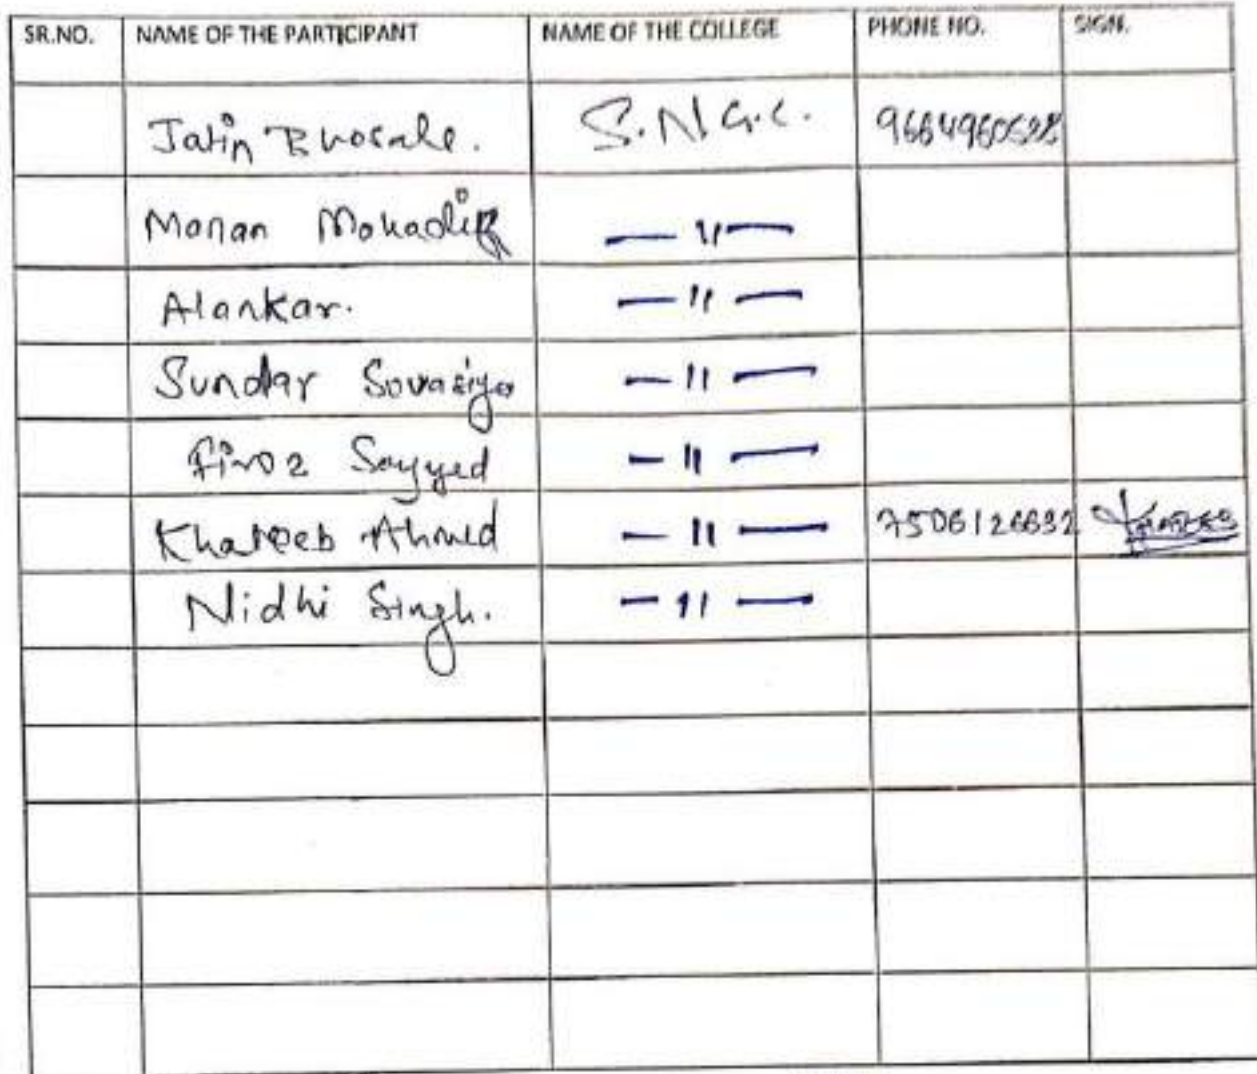 SR.NO. NAME OF THE PARTICIPANT NAME OF THE COLLEGE PHONE NO. SIGN.
Jatin Bhosale. S.N G.C.
Manan
Alankar. — 11 —
Sundar — 11 —
Firoz Sayyed — 11 —
Khateeb Ahmed — 11 — 7506126632
Nidhi Singh. — 11 —